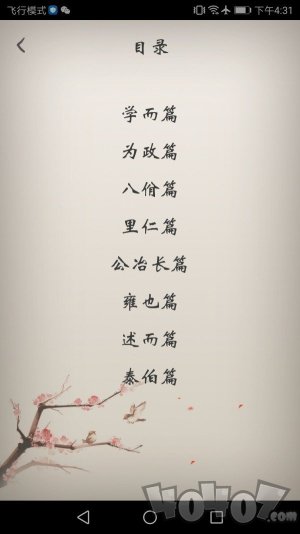 飞行模式 下午4:31
目录
学而篇
为政篇
八佾篇
里仁篇
公冶长篇
雍也篇
述而篇
泰伯篇
40407.com